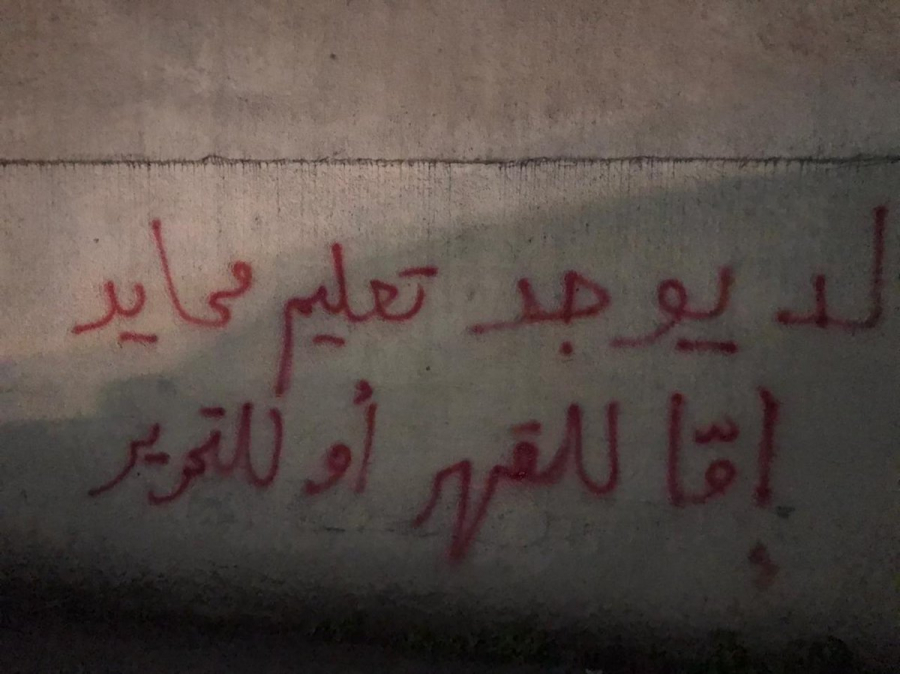 لا يوجد تعليم محايد
إمّا للقهر أو للتحرير